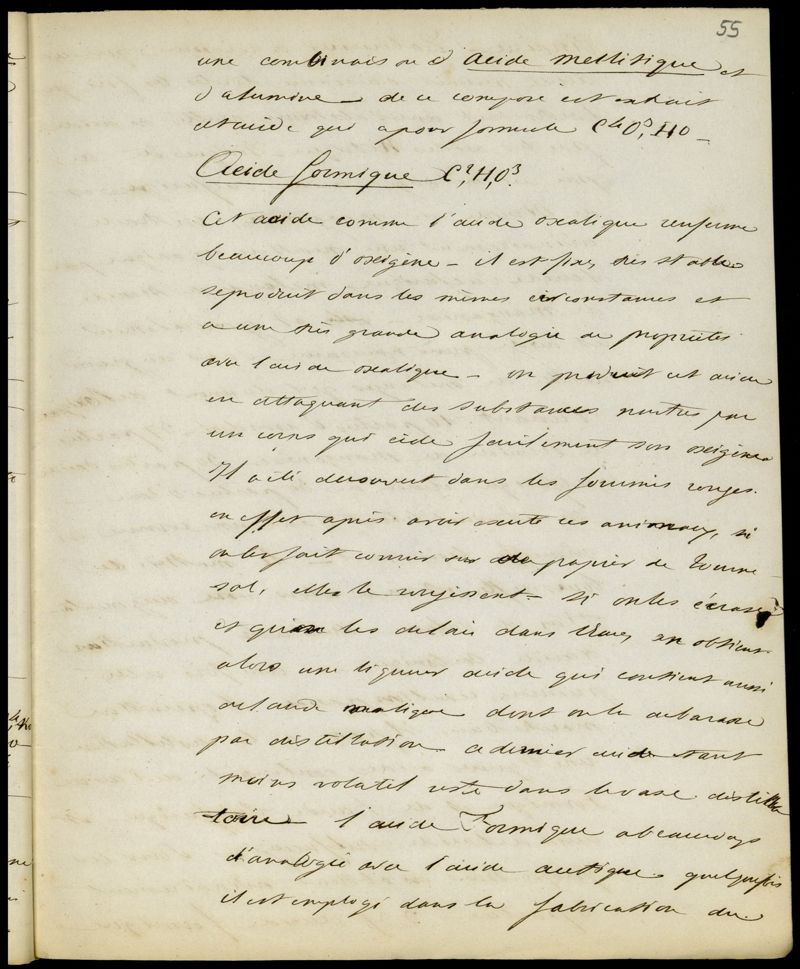 55
une combinaison d'acide mellitique et
d'alumine — de ce composé est extrait
cet acide qui a pour formule C⁴O³, HO —
Acide formique C², H, O³.
Cet acide comme l'acide oxalique renferme
beaucoup d'oxigène — il est fixe, très stable
se produit dans les mêmes circonstances et
a une très grande analogie de propriétés
avec l'acide oxalique — on produit cet acide
en attaquant des substances neutres par
un corps qui cède facilement son oxigène
Il a été découvert dans les fourmis rouges.
en effet après avoir excité ces animaux, si
on les fait courrir sur du papier de tourne-
sol, elles le rougissent — si on les écrase
et qu'on les délaie dans l'eau, on obtient
alors une liqueur acide qui contient aussi
de l'acide malique dont on le debarasse
par distillation ce dernier acide étant
moins volatil reste dans le vase distilla
toire l'acide Formique a beaucoup
d'analogie avec l'acide acétique quelquefois
il est employé dans la fabrication du